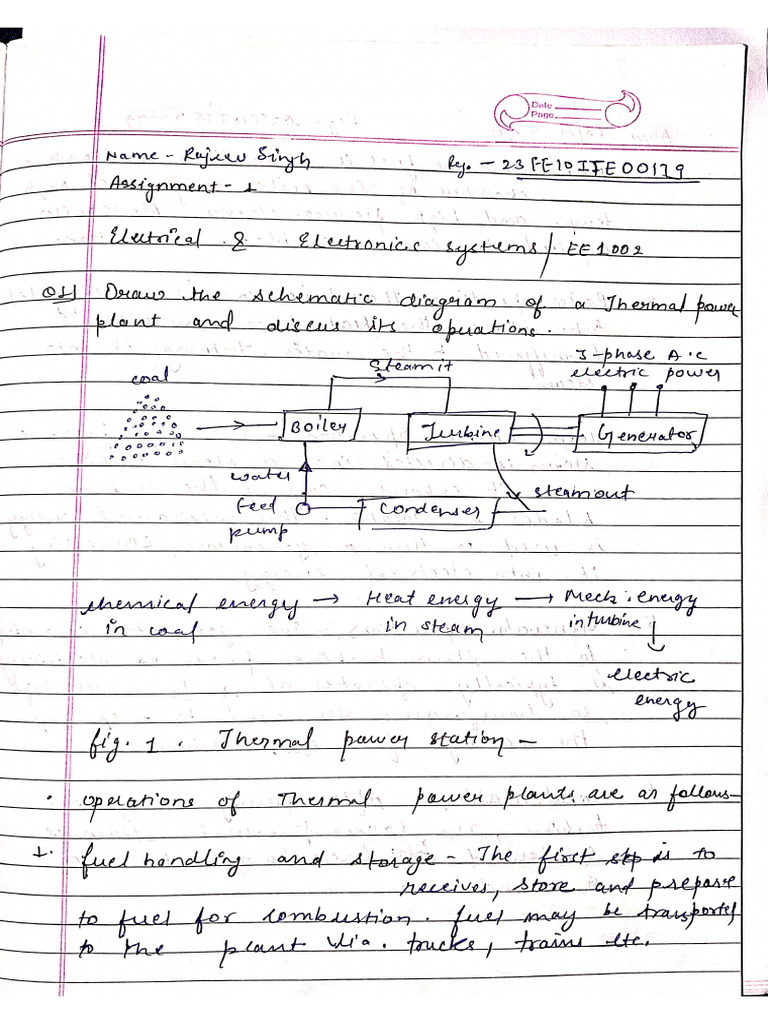 Date
Page
Name - Rajeev Singh Reg. - 23FE10ITE00179
Assignment - 1
Electrical & Electronics systems / EE1002
Q1) Draw the schematic diagram of a Thermal power
plant and discus its operations.
3-phase A.C
electric power
Steam it
coal
Boiler
Turbine
Generator
water
feed
pump
Condenser
steam out
chemical energy → Heat energy → Mech. energy
in coal in steam in turbine
electric
energy
fig. 1. Thermal power station -
• operations of Thermal power plants are as follows-
1. fuel handling and storage - The first step is to
receives, store and prepare
to fuel for combustion. fuel may be transported
to the plant via. trucks, trains etc.